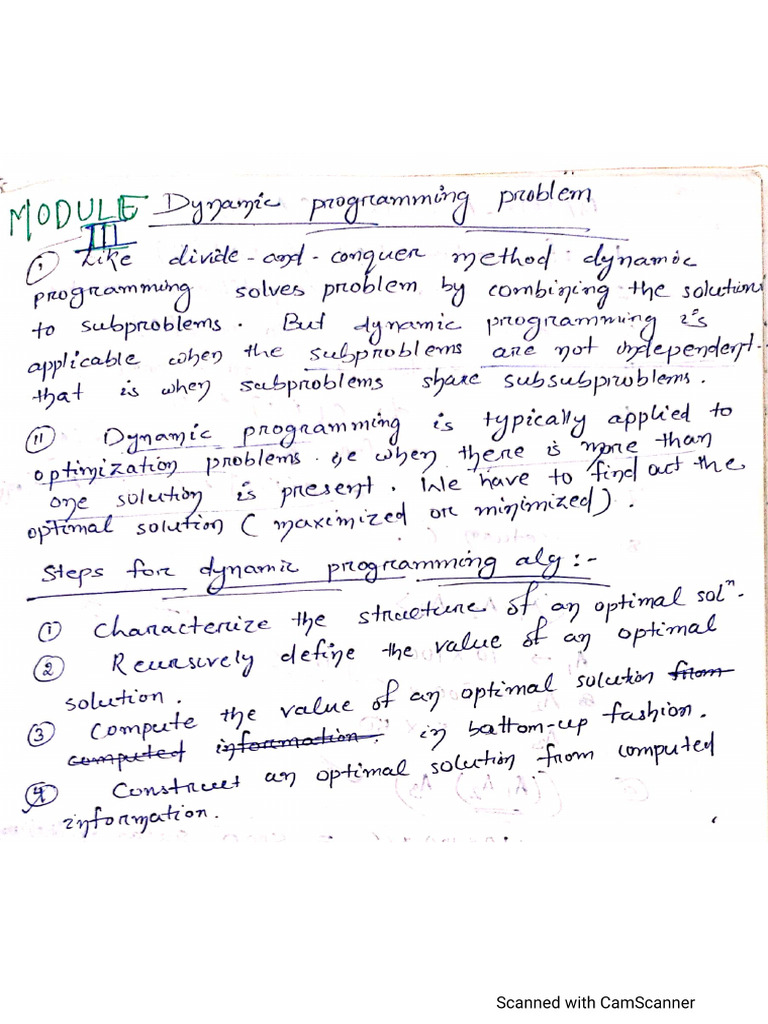 MODULE Dynamic programming problem
III
(i) Like divide-and-conquer method dynamic
programming solves problem by combining the solution
to subproblems. But dynamic programming is
applicable when the subproblems are not independent.
that is when subproblems share subsubproblems.
(ii) Dynamic programming is typically applied to
optimization problems. ie when there is more than
one solution is present. We have to find out the
optimal solution (maximized or minimized).
Steps for dynamic programming alg:-
① Characterize the structure of an optimal solⁿ.
② Recursively define the value of an optimal
solution.
③ Compute the value of an optimal solution from
computed information. in bottom-up fashion.
④ Construct an optimal solution from computed
information.
Scanned with CamScanner